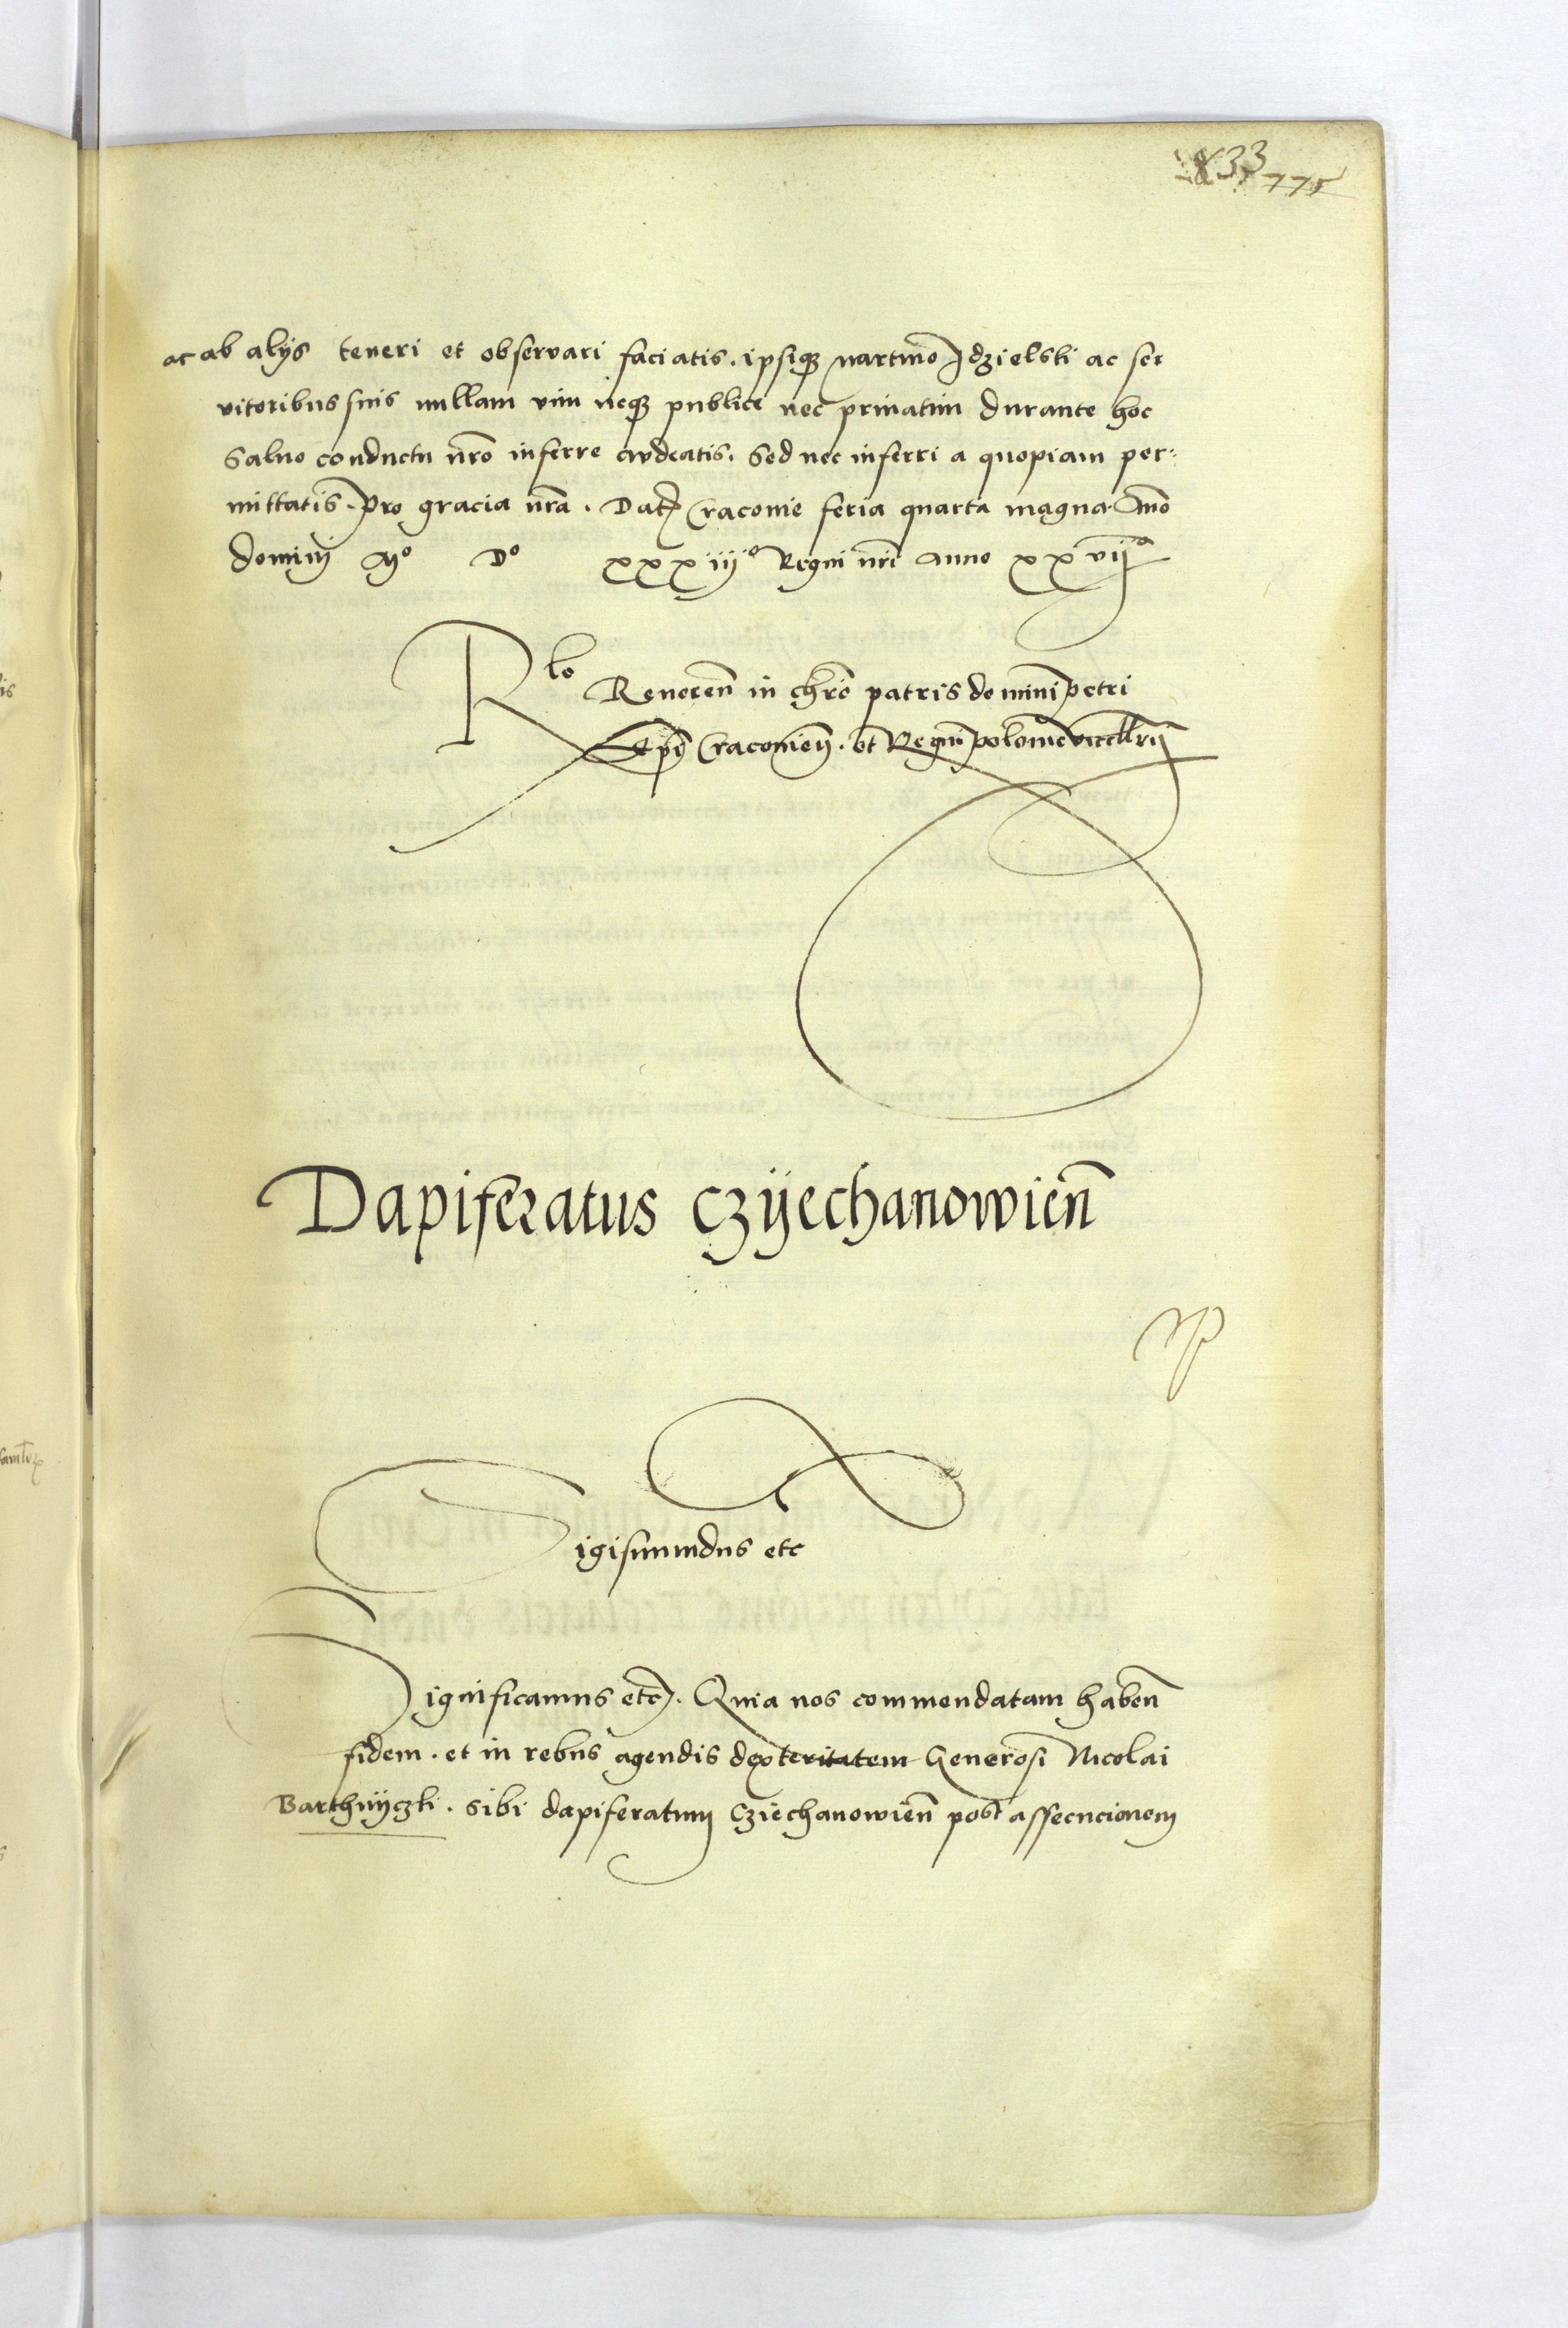 833 775
ac ab alijs teneri et observari faciatis. ipsiqȝ martino Idzielski ac ser
vitoribus suis nullam vim neqȝ publice nec privatim durante hoc
salvo conductu nr̄o inferre audeatis. Sed nec inferri a quopiam per:
mittatis. pro gracia nr̄a. Datꝫ Cracovie feria quarta magna Anno
dominj Mo Do xxxiijo Regni nr̄i anno xxvijo
Rlo Reveren̄ in chr̄o patris domini petri
Epī Cracovien̄. et Regni polonie vicecll̄rij
Dapiferatus Czÿechanowien̄
Sigismundus etc
Significamus etc. Quia nos commendatam haben̄
fidem. et in rebus agendis dexteritatem Generosi Nicolai
Barthnÿczki. sibi dapiferatum Cziechanowien̄ post assecucionem